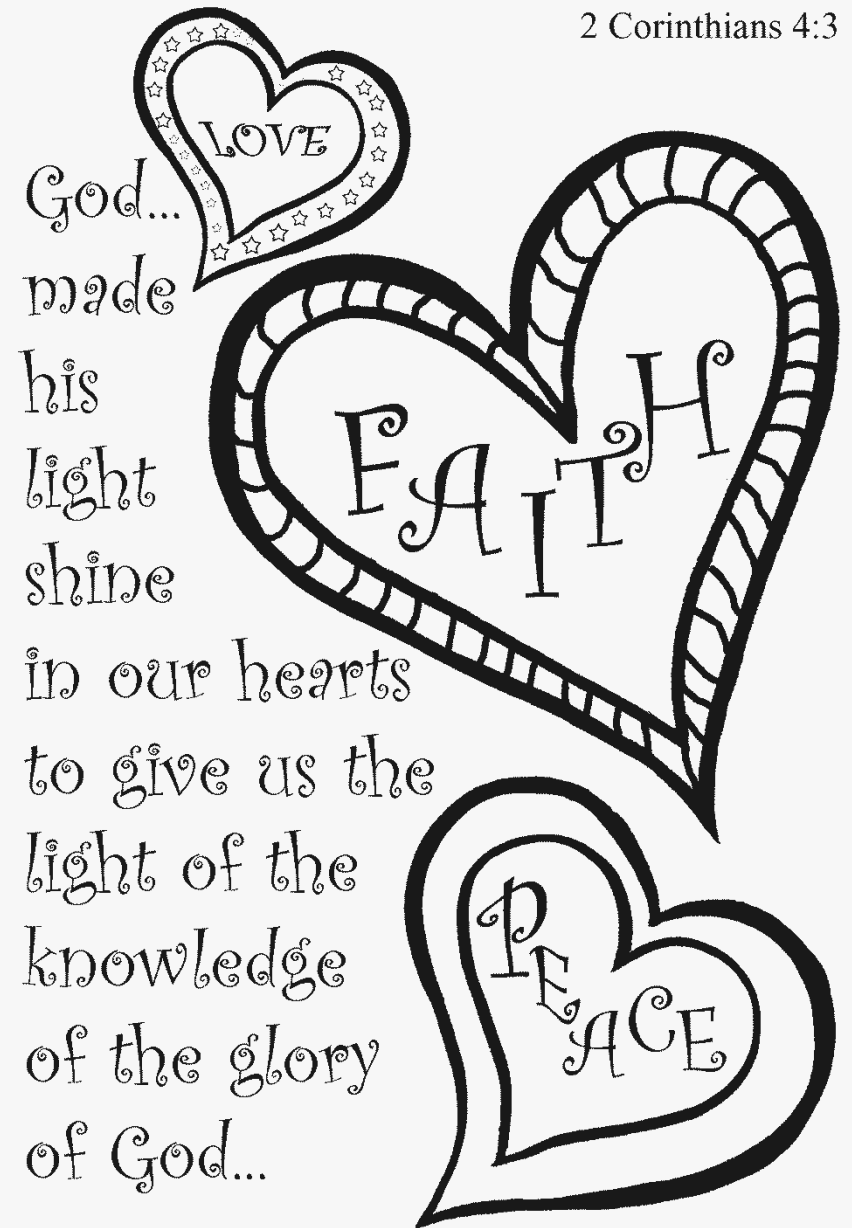 2 Corinthians 4:3
LOVE
God...
made
his
light
shine
in our hearts
to give us the
light of the
knowledge
of the glory
of God...
FAITH
PEACE